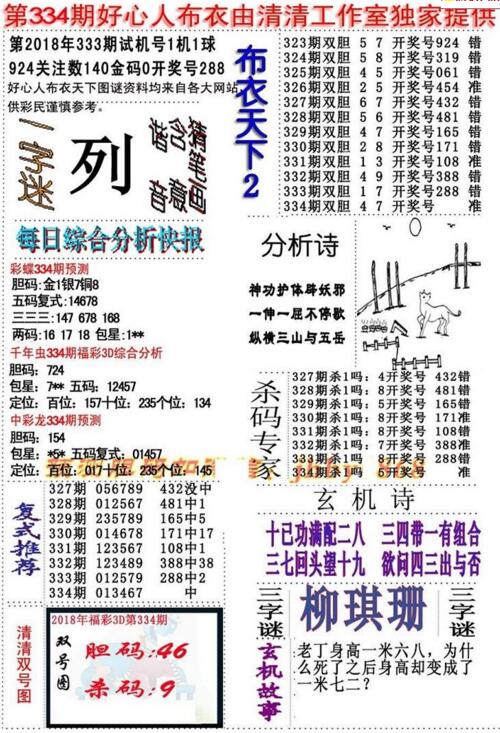 第334期好心人布衣由清清工作室独家提供
第2018年333期试机号1机1球
924关注数140金码0开奖号288
好心人布衣天下图谜资料均来自各大网站
供彩民谨慎参考。
一字迷
列
猜笔画
含意
谐音
每日综合分析快报
彩蝶334期预测
胆码:金1银7铜8
五码复式:14678
三三三:147 678 168
两码:16 17 18 包星:1**
千年虫334期福彩3D综合分析
胆码:724
包星:7** 五码:12457
定位:百位:157十位:235个位:134
中彩龙334期预测
胆码:154
包星:*5* 五码复式:01457
定位:百位:017十位:235个位:145
复式推荐
327期 056789 432没中
328期 012567 481中1
329期 235789 165中5
330期 014678 171中17
331期 123567 108中1
332期 123489 388中38
333期 012579 288中2
334期 013467 中
清清双号图
2018年福彩3D第334期
双号图
胆码:46
杀码:9
布衣天下2
323期双胆 5 7 开奖号924 错
324期双胆 5 8 开奖号319 错
325期双胆 4 5 开奖号061 错
326期双胆 2 5 开奖号454 准
327期双胆 6 7 开奖号432 错
328期双胆 5 6 开奖号481 错
329期双胆 4 7 开奖号165 错
330期双胆 2 8 开奖号171 错
331期双胆 1 3 开奖号108 准
332期双胆 4 9 开奖号388 错
333期双胆 1 7 开奖号288 错
334期双胆 4 7 开奖号 准
分析诗
神功护体辟妖邪
一伸一屈不停歇
纵横三山与五岳
杀码专家
327期杀1吗:4开奖号 432错
328期杀1吗:8开奖号 481错
329期杀1吗:5开奖号 165错
330期杀1吗:8开奖号 171准
331期杀1吗:8开奖号 108错
332期杀1吗:7开奖号 388准
333期杀1吗:8开奖号 288错
334期杀1吗:6开奖号 准
玄机诗
十已功满配二八 三四带一有组合
三七回头望十九 欲问四三出与否
三字谜
柳琪珊
三字谜
玄机故事
老丁身高一米六八,为什
么死了之后身高却变成了
一米七二?